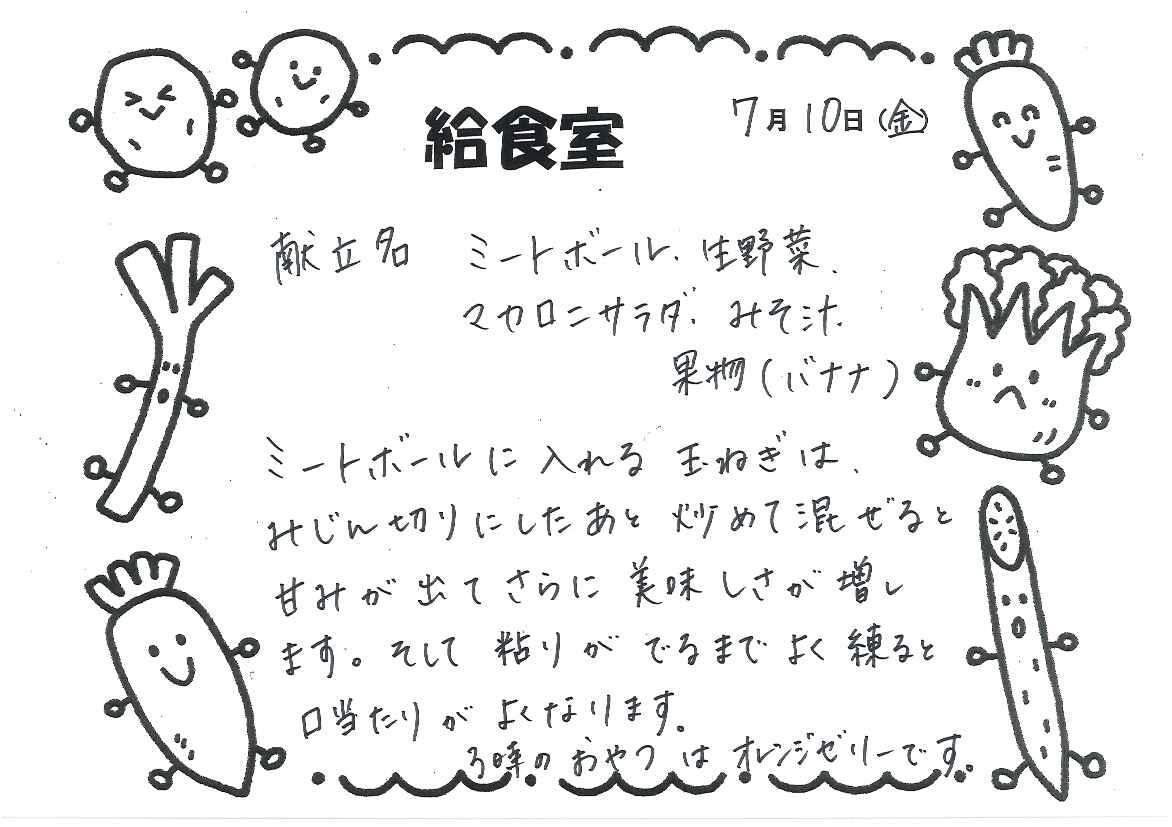 給食室
7月10日(金)
献立名 ミートボール、生野菜、
マカロニサラダ、みそ汁、
果物(バナナ)
ミートボールに入れる玉ねぎは、
みじん切りにしたあと炒めて混ぜると
甘みが出てさらに美味しさが増し
ます。そして粘りがでるまでよく練ると
口当たりがよくなります。
3時のおやつはオレンジゼリーです。